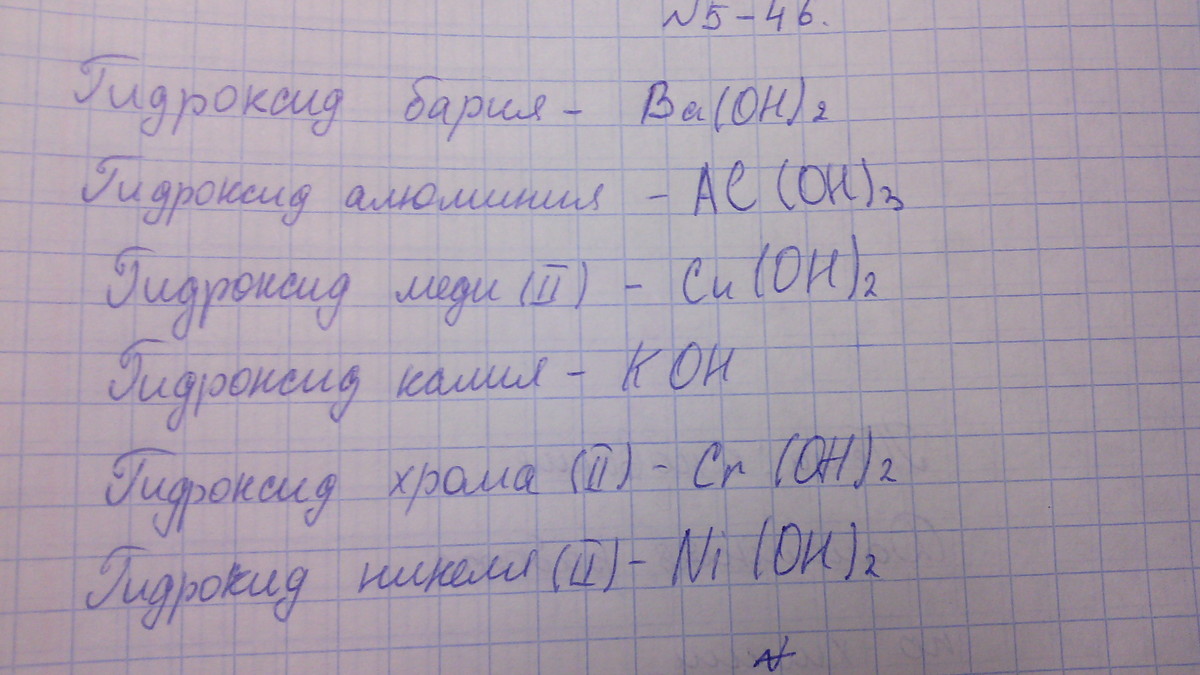 №5-46.
Гидроксид бария - Ba(OH)2
Гидроксид алюминия - Al(OH)3
Гидроксид меди (II) - Cu(OH)2
Гидроксид калия - KOH
Гидроксид хрома (II) - Cr(OH)2
Гидрокид никеля (II) - Ni(OH)2